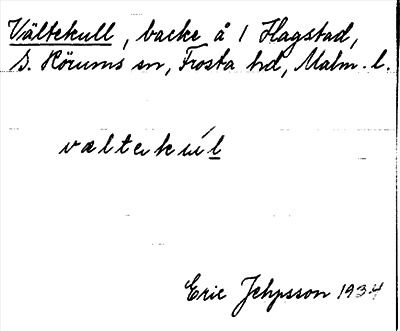 Vältekull, backe å 1 Hagstad,
S. Rörums sn, Frosta hd, Malm. l.
Eric Jehpsson 1934